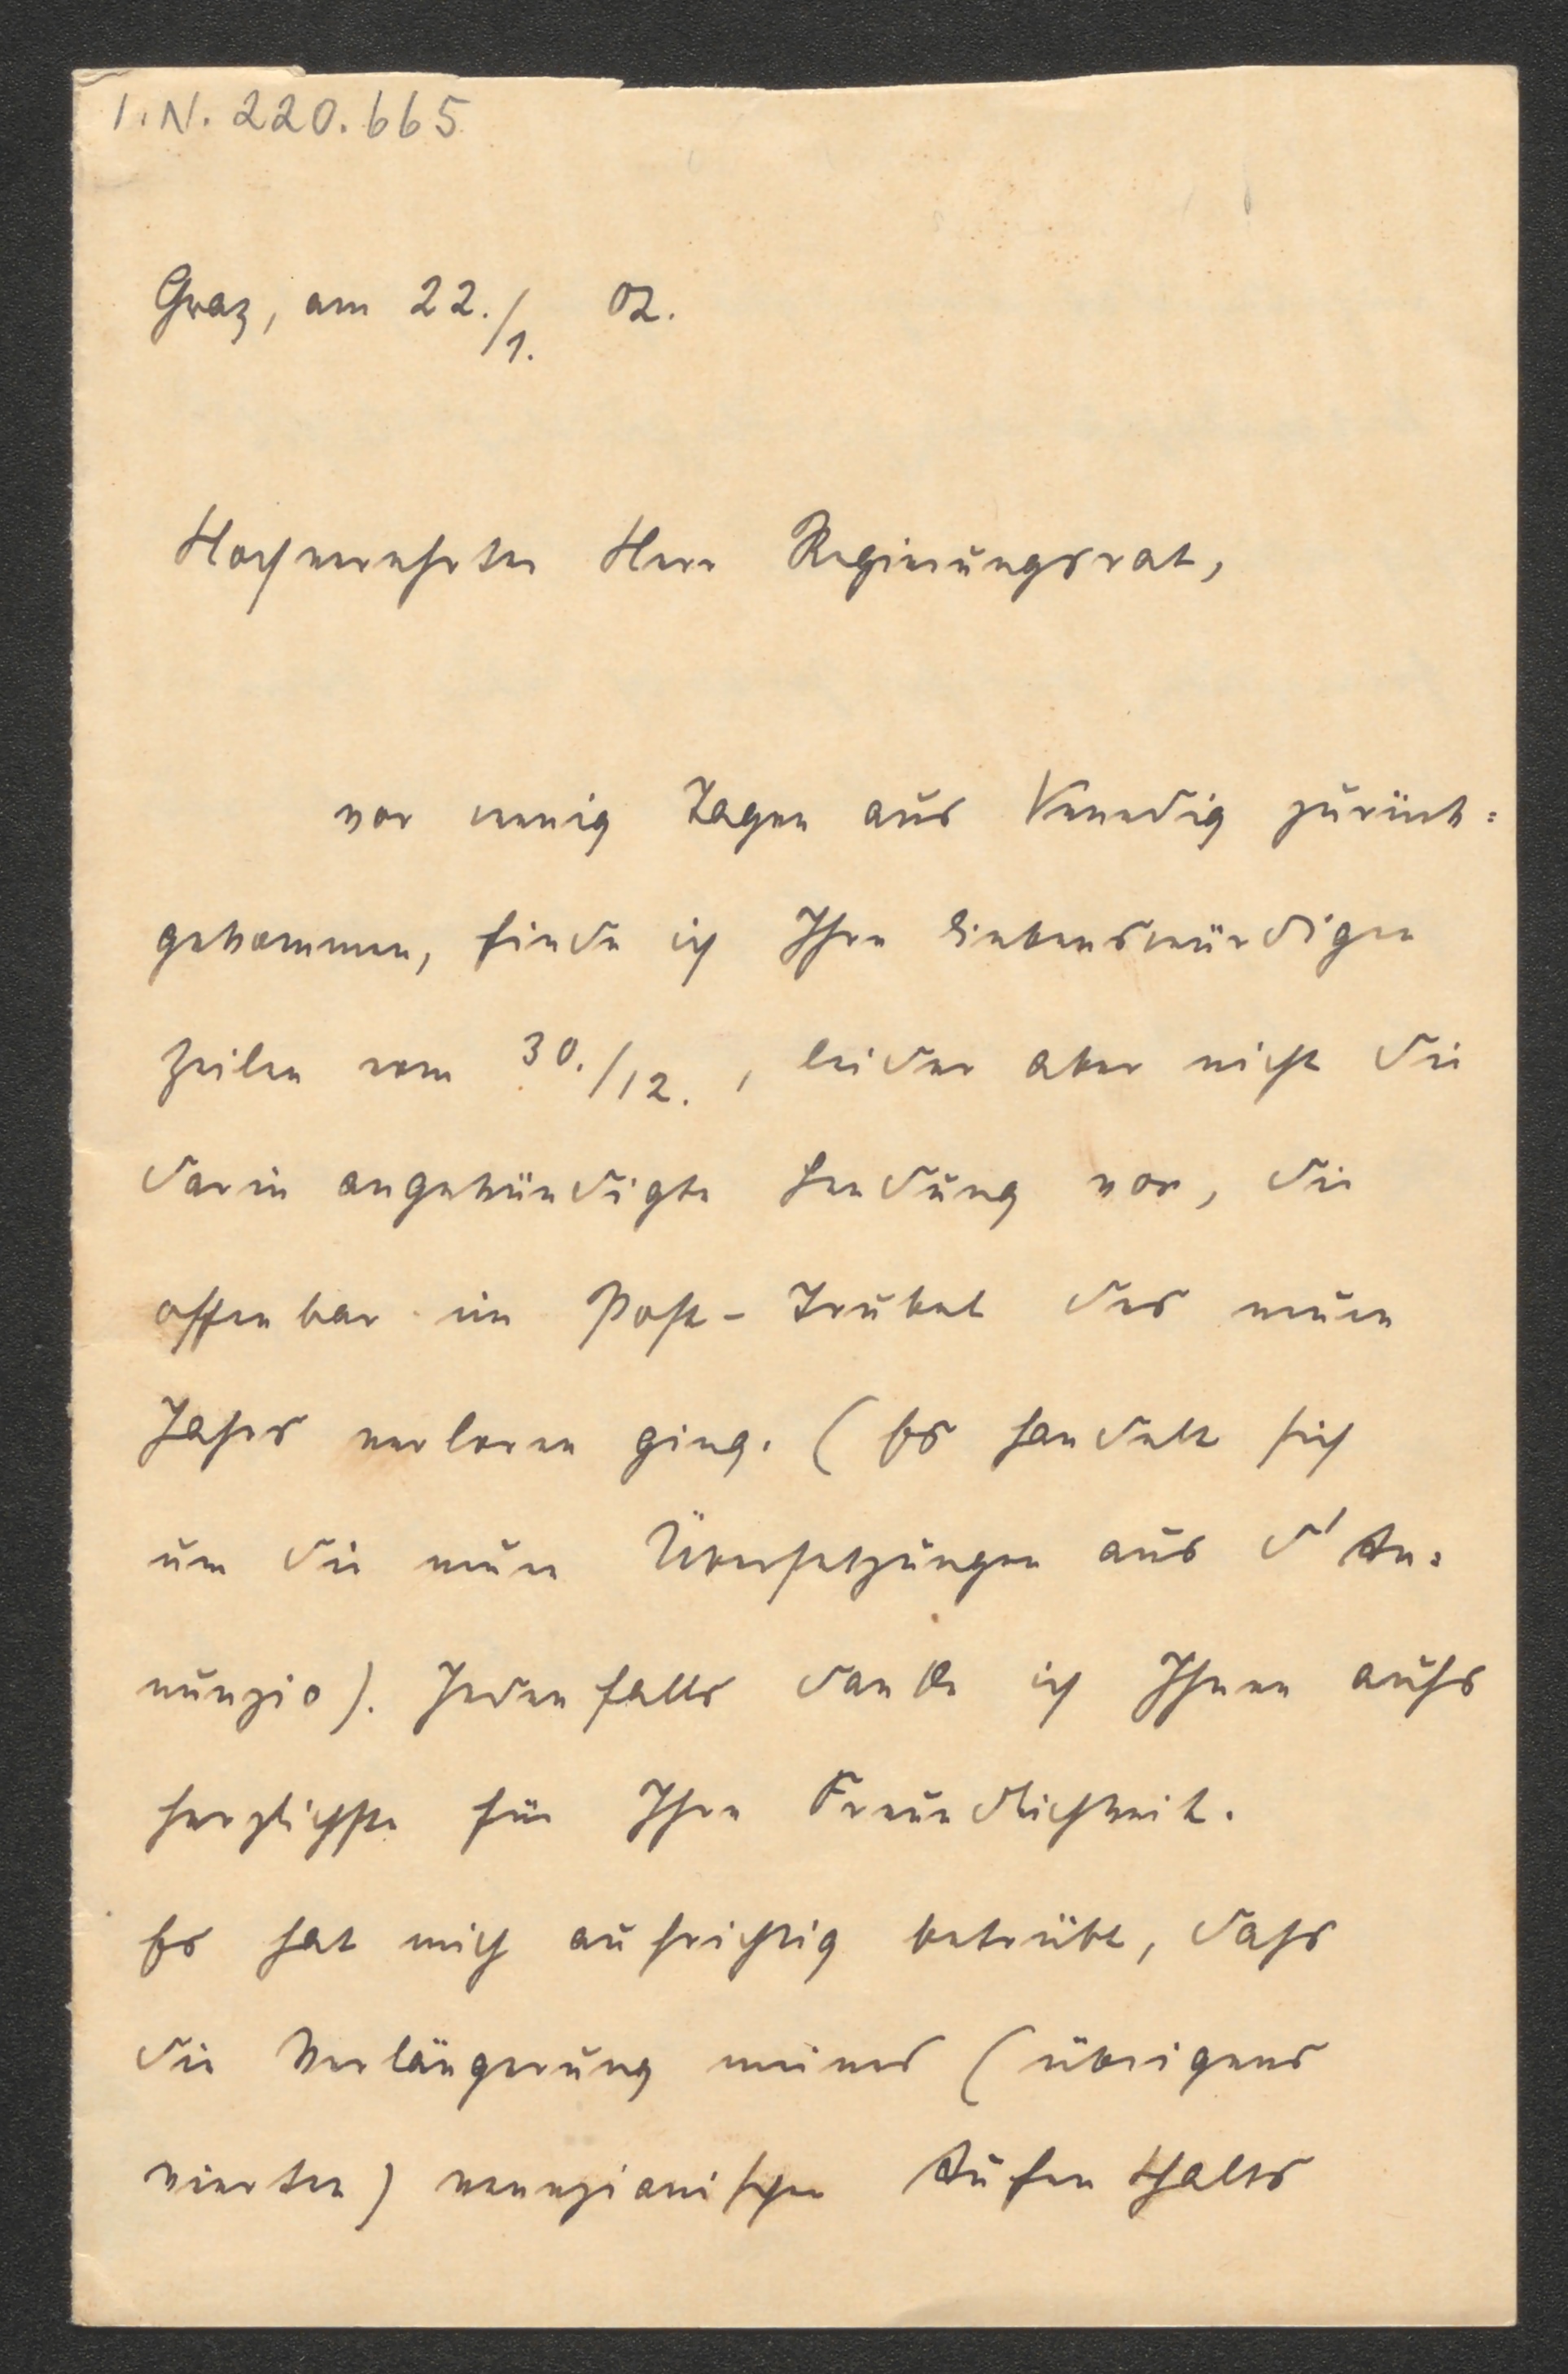 I.N. 220.665
Graz, am 22./1. 02.
Hochverehrter Herr Regierungsrat,
vor wenig Tagen aus Venedig zurück=
gekommen, finde ich Ihre liebenswürdigen
Zeilen vom 30./12., leider aber nicht die
darin angekündigte Sendung vor, die
offenbar im Post-Trubel des neuen
Jahres verloren ging. (Es handelt sich
um die neuen Übersetzungen aus d'An=
nunzio). Jedenfalls danke ich Ihnen aufs
herzlichste für Ihre Freundlichkeit.
Es hat mich aufrichtig betrübt, dass
die Verlängerung meines (übrigens
vierten) venezianischen Aufenthalts